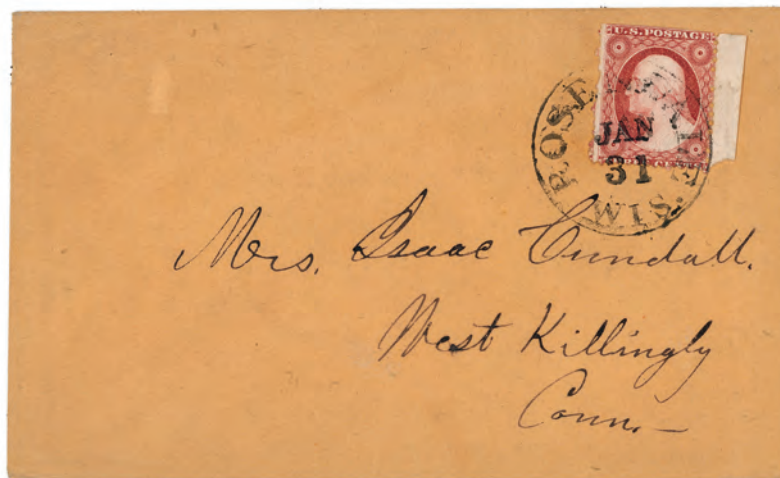 U.S. POSTAGE
ROSENDALE
JAN
31
WIS.
Mrs. Isaac Cundall.
West Killingly
Conn.